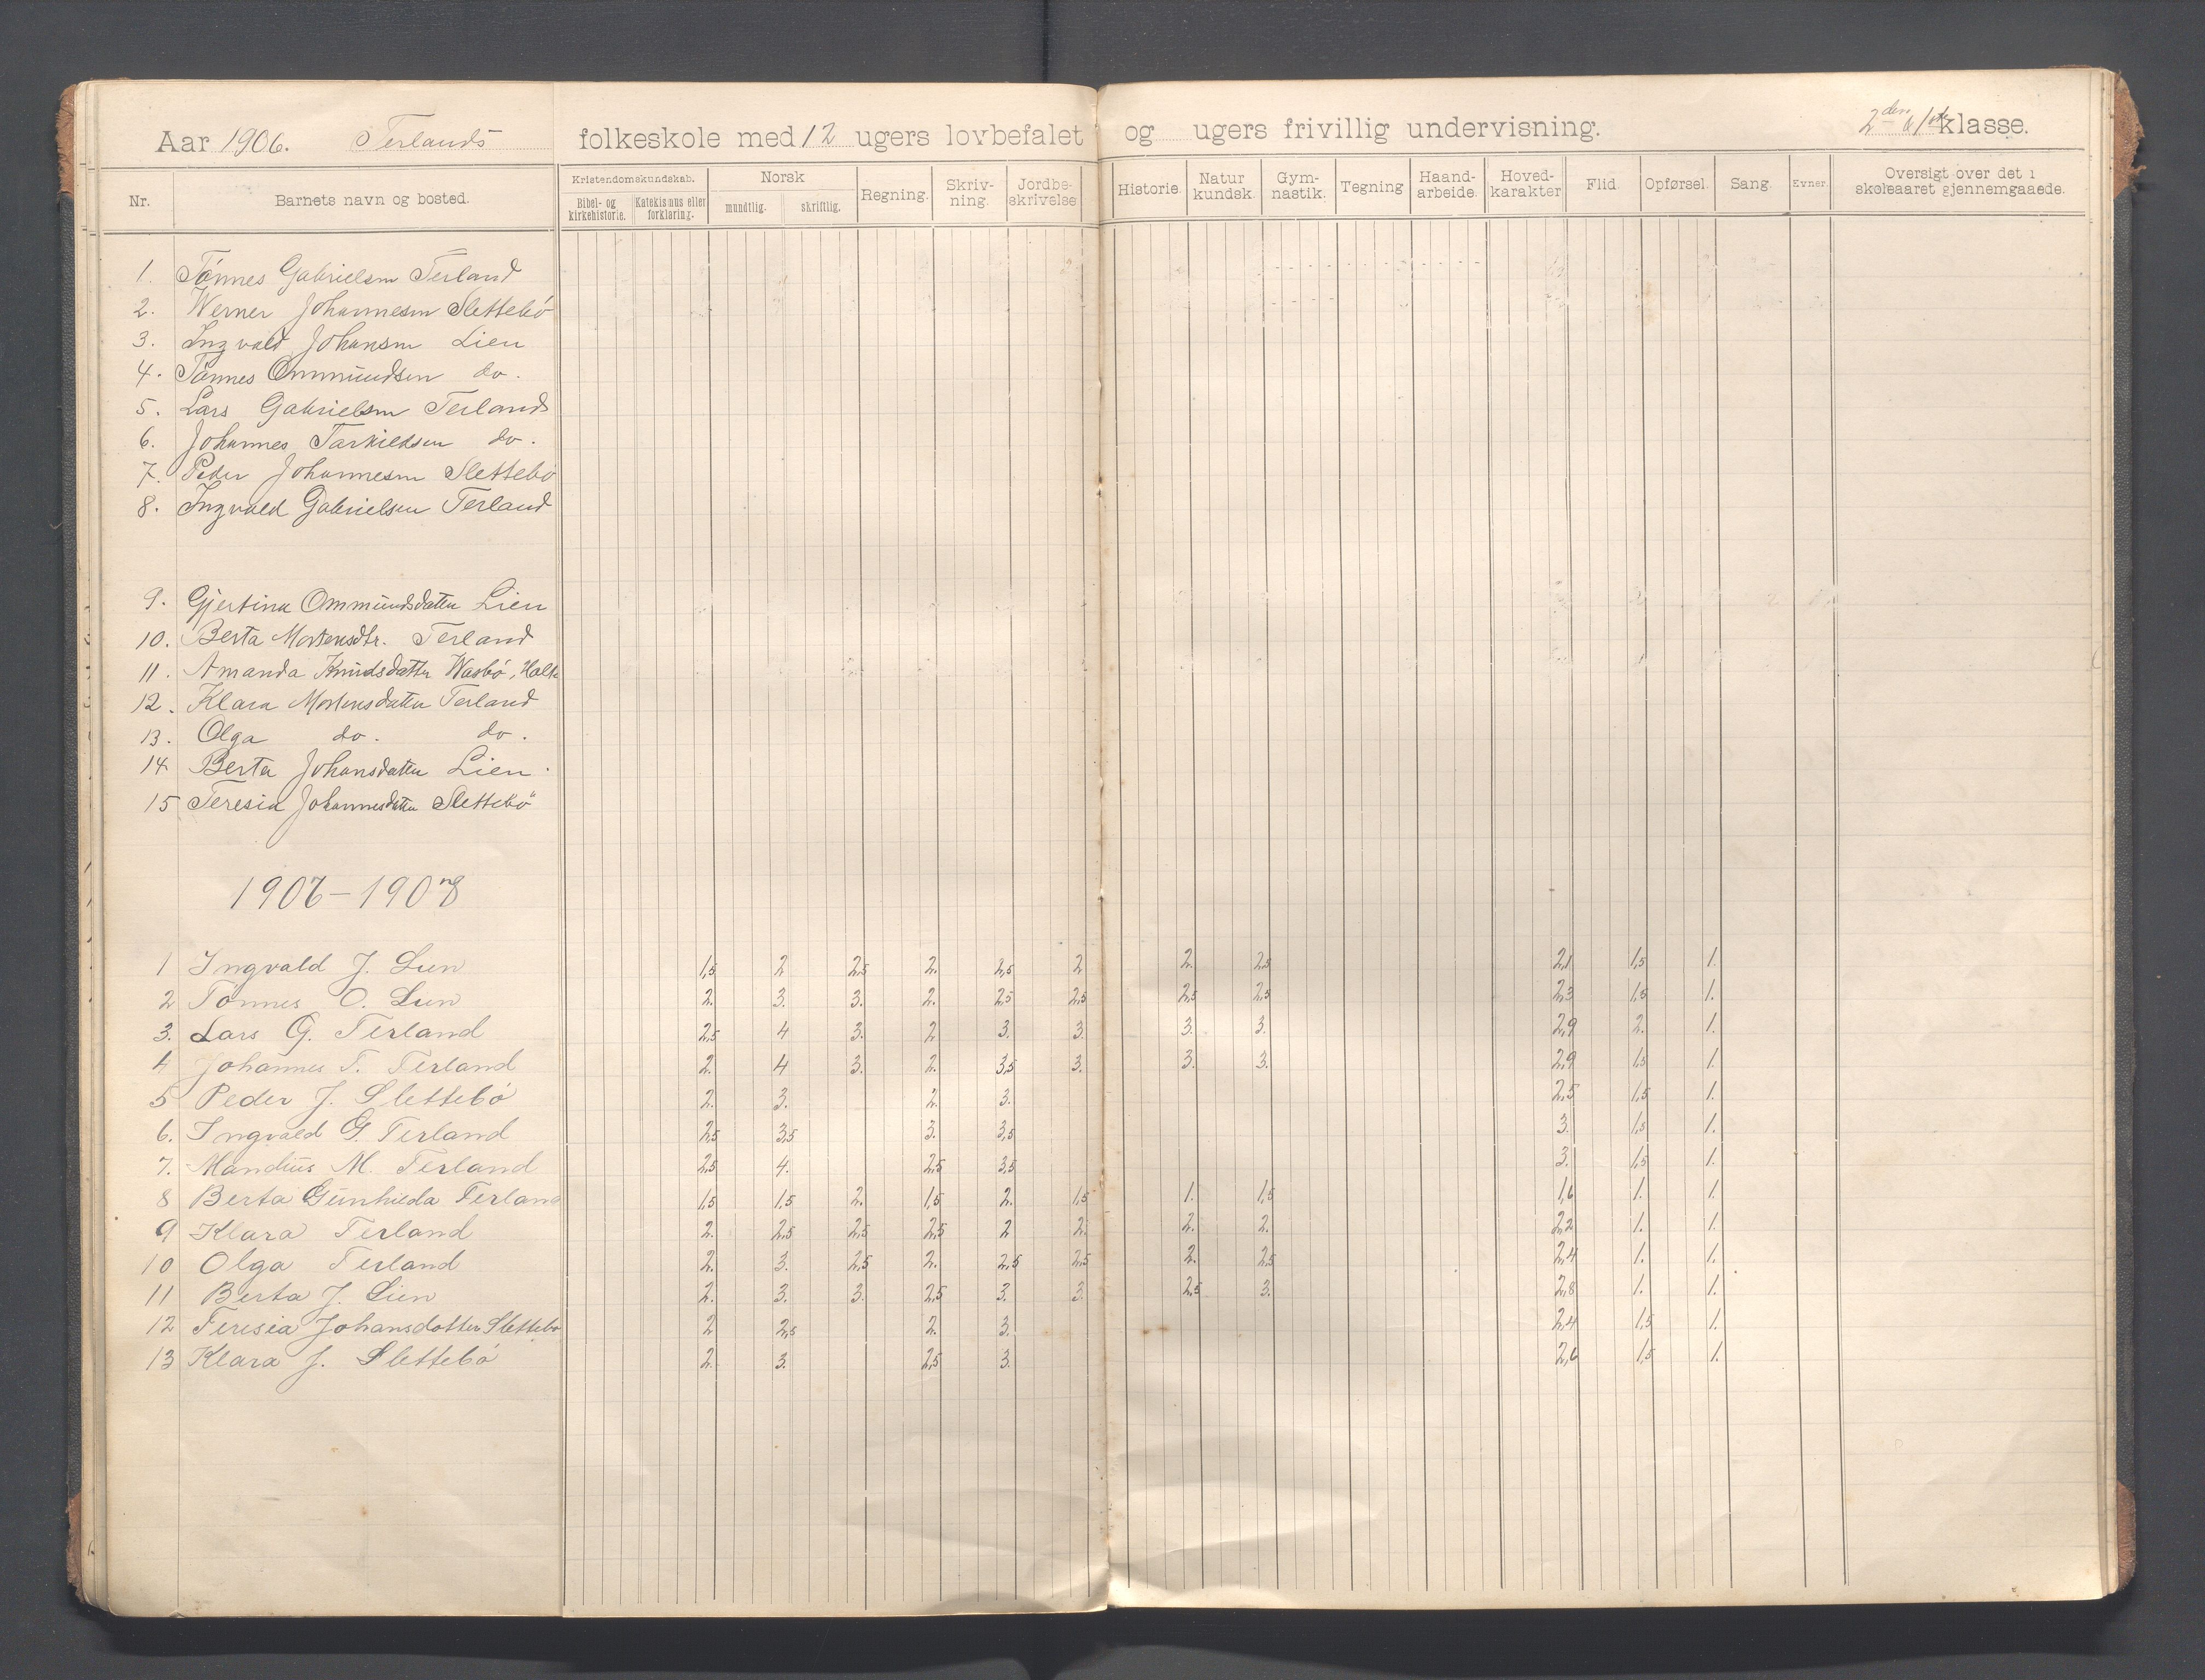 Aar 1906. Terlands folkeskole med 12 ugers lovbefalet og ugers frivillig undervisning. 2den klasse.
Nr. Barnets navn og bosted. Kristendomskundskab. Bibel- og kirkehistorie. Katekismus eller forklaring. Norsk mundtlig. skriftlig. Regning. Skriv-ning. Jordbe-skrivelse Historie. Natur kundsk. Gym-nastik. Tegning Haand-arbeide. Hoved-karakter Flid. Opførsel. Sang. Evner. Oversigt over det i skoleaaret gjennemgaaede.
1. Tönnes Gabrielsen Terland
2. Werner Johannesen Slettebö
3. Ingvald Johansen Lien
4. Tönnes Ommundsen do.
5. Lars Gabrielsen Terland
6. Johannes Tarkildsen do.
7. Peder Johannesen Slettebö
8. Ingvald Gabrielsen Terland
9. Gjertina Ommundsdatter Lien
10. Berta Mortensdtr. Terland
11. Amanda Knudsdatter
12. Klara Mortensdatter Terland
13. Olga do. do.
14 Berta Johansdatter Lien.
15 Teresia Johannesdatter Slettebö
1 Ingvald J. Lien 1,5 2 2,5 2. 2,5 2 2. 2,5 2,1 1,5 1.
2 Tönnes O. Lien 2. 3. 3. 2. 2,5 2,5 2,5 2,5 2,3 1,5 1.
3. Lars G. Terland 2,5 4 3. 2 3. 3. 3. 3. 2,9 2. 1.
4 Johannes T. Terland 2. 4 3. 2. 3,5 3. 3. 3. 2,9 1,5 1.
5 Peder J. Slettebö 2. 3. 2. 3. 2,5 1,5 1.
6. Ingvald G. Terland 2,5 3,5 3. 3,5 3. 1,5 1.
7. Mandius M. Terland 2,5 4. 2,5 3,5 3. 1,5 1.
8 Berta Gunhilda Terland 1,5 1,5 2. 1,5 2. 1,5 1. 1,5 1,6 1. 1.
9 Klara Terland 2. 2,5 2,5 2,5 2 2. 2. 2. 2,2 1. 1.
10 Olga Terland 2. 3. 2,5 2. 2,5 2,5 2. 2,5 2,4 1. 1.
11 Berta J. Lien 2. 3. 3. 2,5 3. 3. 2,5 3. 2,8 1. 1.
12 Teresia Johansdotter Slettebö 2 2,5 2. 3. 2,4 1,5 1.
13 Klara J. Slettebö 2. 3. 2,5 3. 2,6 1,5 1.